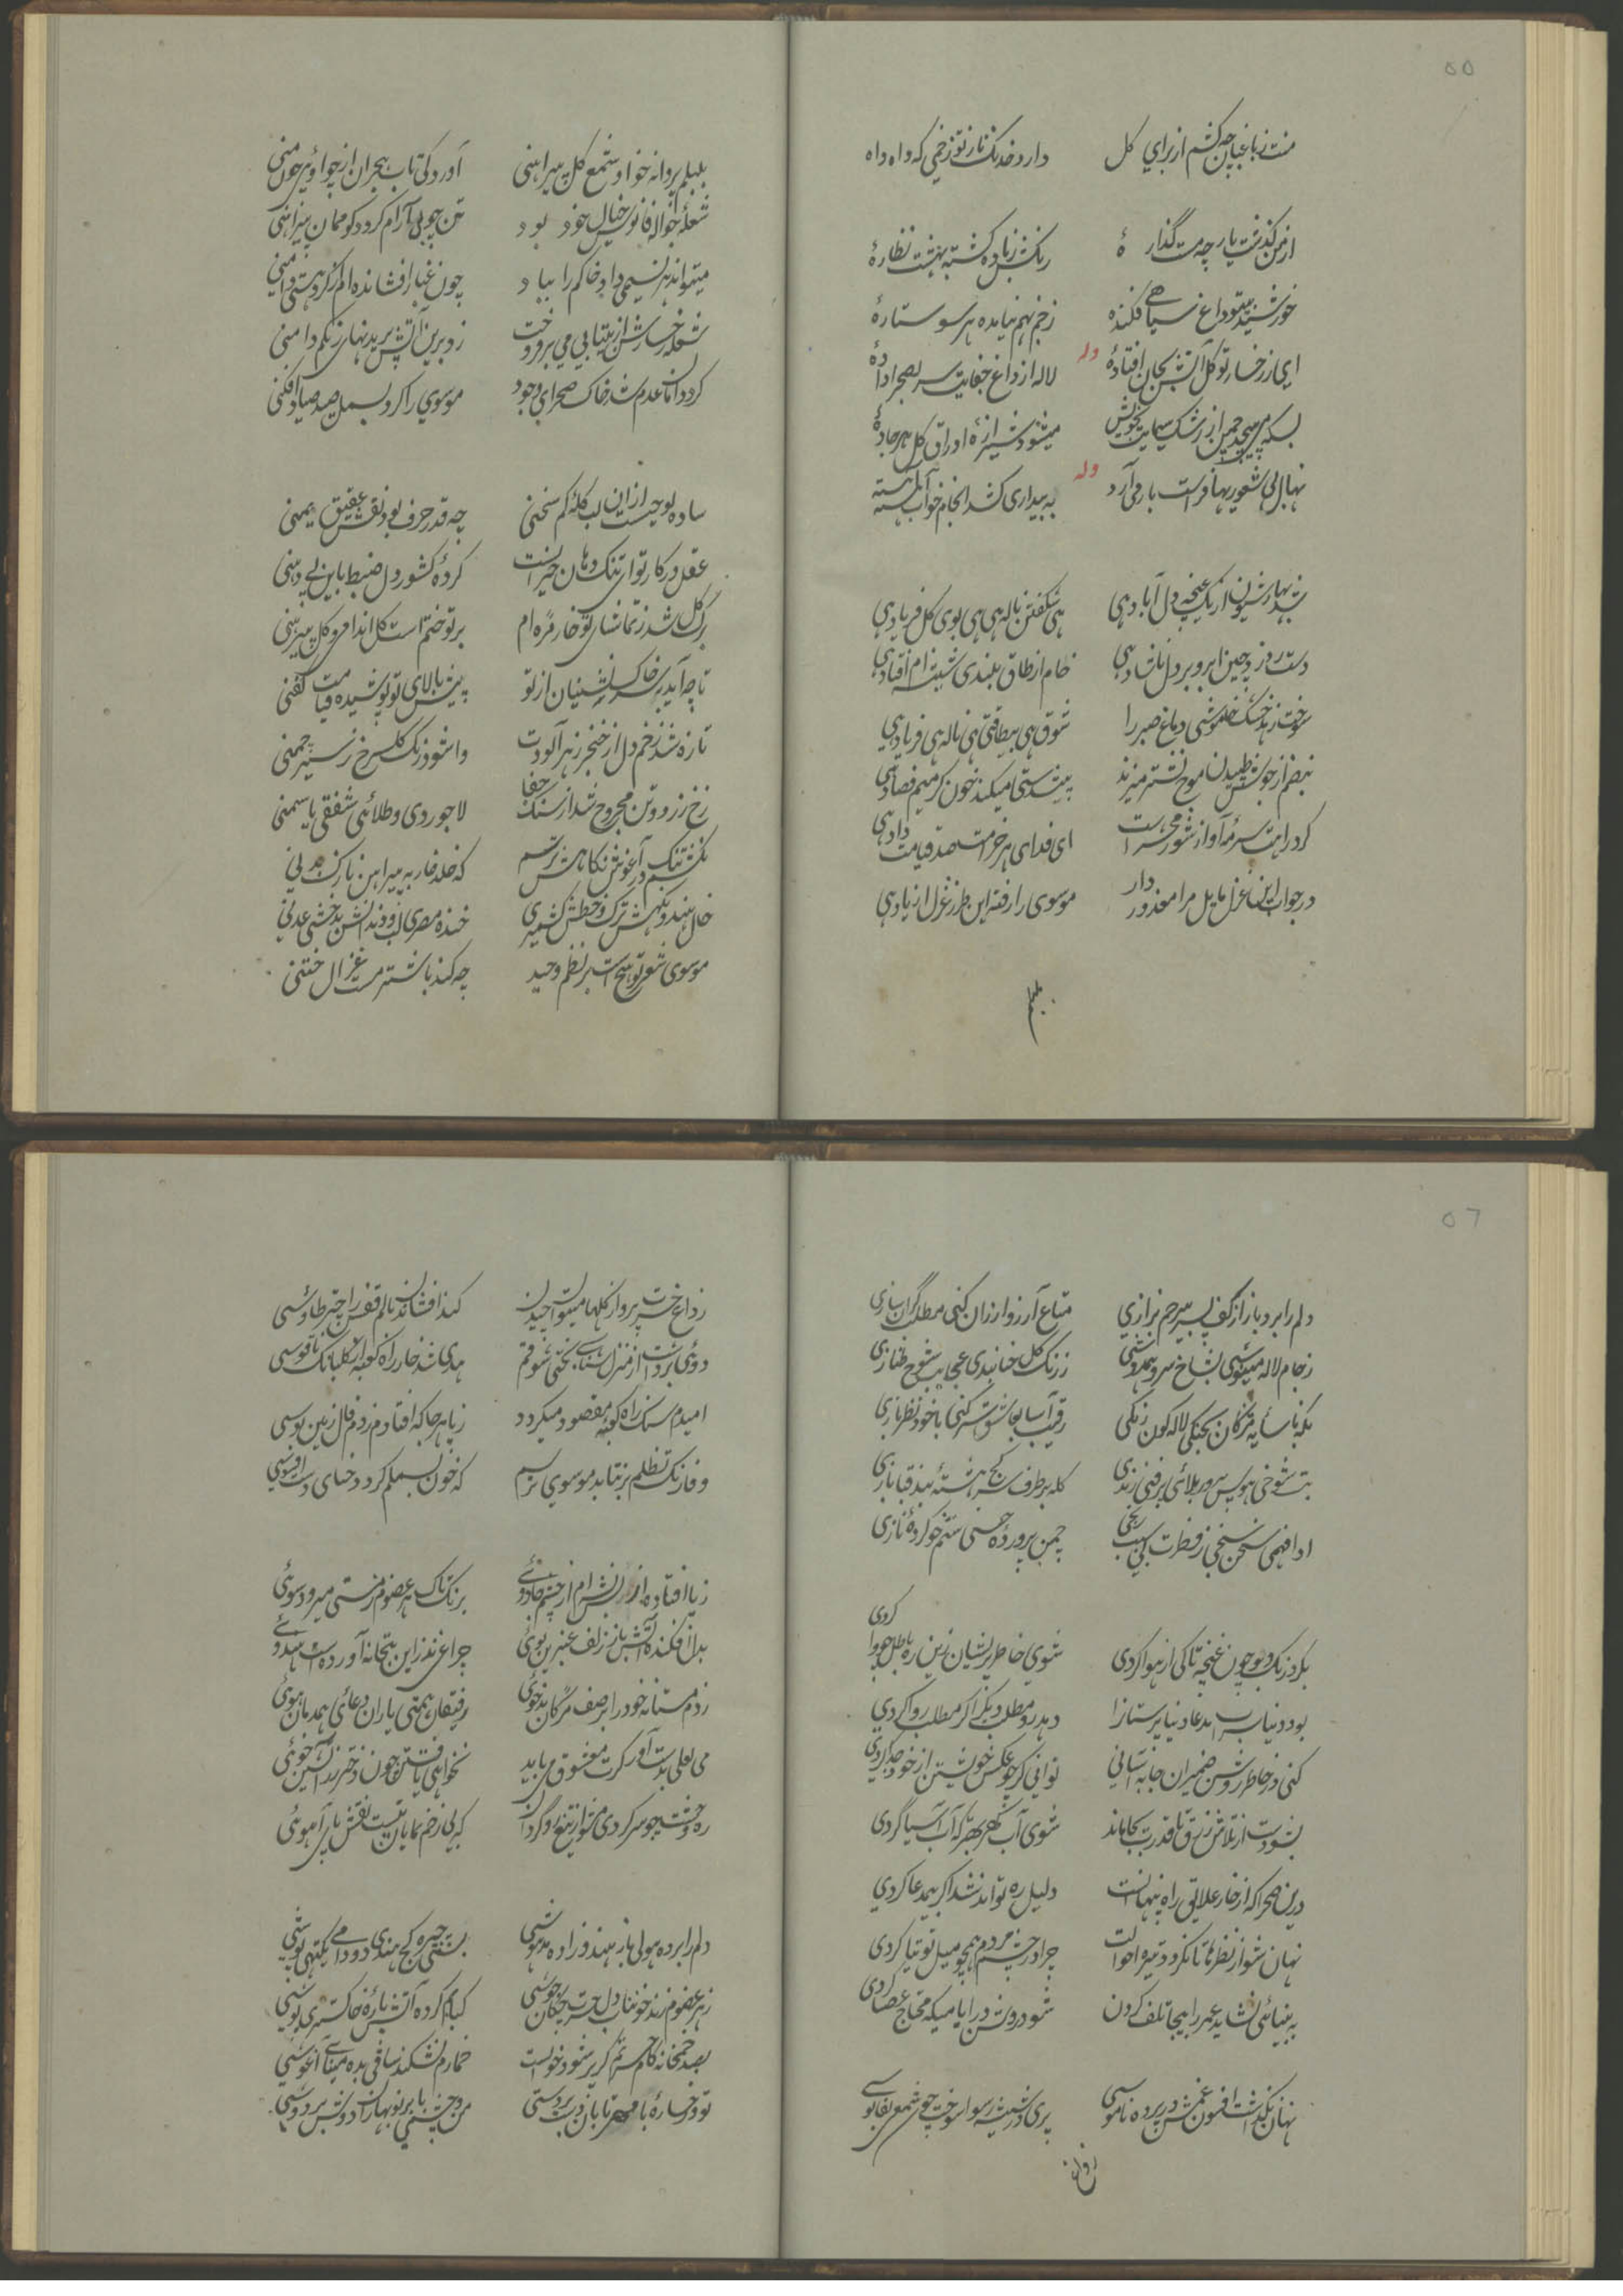 ۵۵
منت زباغبان چه کشم از برای کل
دارد خدنک ناز تو زخمی که واه واه
از من کذشت یار چه مست گذارهٔ
رنکش زباده کشته بهشت نظارهٔ
خورشید میتو داغ سیاهی فکنده
زخم نیامده هر سو ستارهٔ
وله
ای ز رخسار تو کل آتش بجان افتادهٔ
لاله از داغ جفایت سر بصحرا دادهٔ
بسکه می پیچد چمن از رشک سیمایت بخویش
میشود شیرازهٔ اوراق کل هر جادهٔ
وله
نهال بی شعوریها فراست بار می آرد
به بیداری کشد انجام خواب آهسته آهسته
شد بهار شیون از یک غنچه دل آباد هی
هی شکفتن ناله هی هی بوی کل فریاد هی
دست رد زد چین ابرو بر دل ناشاد هی
خام از طاق بلندی شیشه ام افتاد هی
سوخت زهد خشک خاموشی دماغ صبر را
شوق هی بیطاقتی هی ناله هی فریاد هی
نبضم از جوش طپیدن موج نشتر میزند
پیشدستی میکند خون کرمیم فصاد هی
کرد راهت سرمهٔ آواز شور محشر است
ای فدای هر خرامت صد قیامت داد هی
در جواب این غزل مایل مرا معذور دار
موسوی را رفته این طرز غزل از یاد هی
بلبلم
بلبلم پروانه خو او شمع کل پیراهنی
آورد کی تاب هجران از چو اوئی چون منی
شعلهٔ جواله فانوس خیال خود بود
تن چو بی آرام کردد کو مهمان پیراهنی
میتواند هر نسیمی داد خاکم را بباد
چون غبار افشانده ام از کرد هستی دامنی
شعلهٔ رخسارش از بیتابی می برفروخت
زد برین آتش پرید نهای رنکم دامنی
کرد دامان عدم شد خاک صحرای وجود
موسوی را کرد بسمل صید صیاد افکنی
ساده لوحیست از ان لب کلهٔ کم سخنی
چه قدر حرف بود نقش عقیق یمنی
عقل در کار تو ای تنک دهان حیرانست
کردهٔ کشور دل ضبط باین بی دهنی
رک کل شد ز تماشای تو خار مژه ام
بر تو ختم است کل اندامی و کل پیرهنی
تا چه آید بسر خاک نشینان از تو
پیش بالای تو پوشیده قیامت کفنی
تازه شد زخم دل از خنجر زهر آلودت
واشود رنک کل سرخ ز سبز چمنی
رخ زرد و تن مجروح شد از سنک جفا
لاجوردی و طلائی شفقی یاسمنی
تنک در آغوش نکاهش ترسم
که خلد خار به پیراهن نازک بدنی
خال هند و نکهش ترک و خطش کشمیری
خنده مصری لب و دندانش بدخشی عدنی
موسوی شعر تو هیچ است بر نظم وحید
چه کند با شتر مست غزال ختنی
۵٦
دلم را برد باز از کف پسر بیرحم بزازی
متاع آرزو ارزان کنی مطلب گران سازی
ز جام لاله مینوشی بشاخ سرو همدوشی
ز رنک کل حنابندی عجایب شوخ طنازی
بکه با سایهٔ مژکان بجنکی لاله کون رنکی
رقیب آسا بجا شوق شر کنی با خود نظر بازی
بت شوخی هوس پرور بلائی پرفنی رندی
کله بر طرف سر کج هشتهٔ بند قبا بازی
ادا فهمی سخن سنجی ز فطرت بی سبب رنجی
چمن پرورده حسنی ستم خو کردهٔ نازی
بکرد رنک و بو چون غنچه تا کی از هوا کردی
شوی خاطر پریشان زین ره باطل چو وا کردی
بود دنیا سراب مدعا دنیا پرستانرا
دهد رو مطلب دیکر اکر مطلب روا کردی
کنی در خاطر روشن ضمیران جا به آسانی
توانی کر چو عکس خویشتن از خود جدا کردی
بشو دست از تلاش رزق تا قدرت بجا ماند
شوی آب کهر بهتر که آب آسیا گردی
درین صحرا که از خار علایق راه پنهانست
دلیل ره تواند شد اکر بیمدعا کردی
نهان شو از نظرها تا نکردد تیره احوالت
چرا در چشم مردم همچو میل توتیا کردی
به بینائی نشاید عمر را بیجا تلف کردن
شود روشن در ایامیکه محتاج عصا کردی
نهان نکذاشت افسون غمش در پرده ناموسی
پری در شیشه رسوا سوخت چون شمع بفانوسی
ز داغ
ز داغ حسرت پرواز کلها میتوان چیدن
کند افشاندن بالم قفس را چتر طاوسی
دوئی برداشت از منزل شناسی بختی شوقم
هدی شد خار راه کعبه از کلبانک ناقوسی
امیدم سنک راه کعبهٔ مقصود میکردد
ز پا هر جا که افتادم زدم فال زمین بوسی
وفا رنک تظلم برنتابد موسوی ترسم
که خون بسملم کردد حنای دست افسوسی
ز پا افتاده از نشه ام از چشم جادوئی
برنک تاک هر عضوم ز مستی میرود سوئی
بدل افکنده آتش باز زلف عنبرین بوئی
چراغی نذر این بتخانه آورده است هندوئی
زدم مستانه خود را بر صف مژکان بدخوئی
رفیقان همتی یاران دعائی همدمان هوئی
می لعلی بدست آور کرت معشوق می باید
نخواهی یافتن چون دختر رز آتشین خوئی
ره وحشت چو سر کردی متواز تیغ رو کردان
که بی زخم نمایان نیست نقش پای آهوئی
دلم را برده هولی باز هندو زاده مدهوشی
بسنتی چیره کج بندی دودامی یکتهی پوشی
ز هر عضوم زند خونناب دل حسرت چکان جوشی
کبابم کرده آتش پارهٔ خاکستری پوشی
بصد خمخانه کام حسرتم کر پر شود خونست
خمارم نشکند ساقی بده مینای آغوشی
تو و رخسارهٔ با مهر تابان زبردستی
من و چشمی با بر نوبهاران دوش بر دوشی